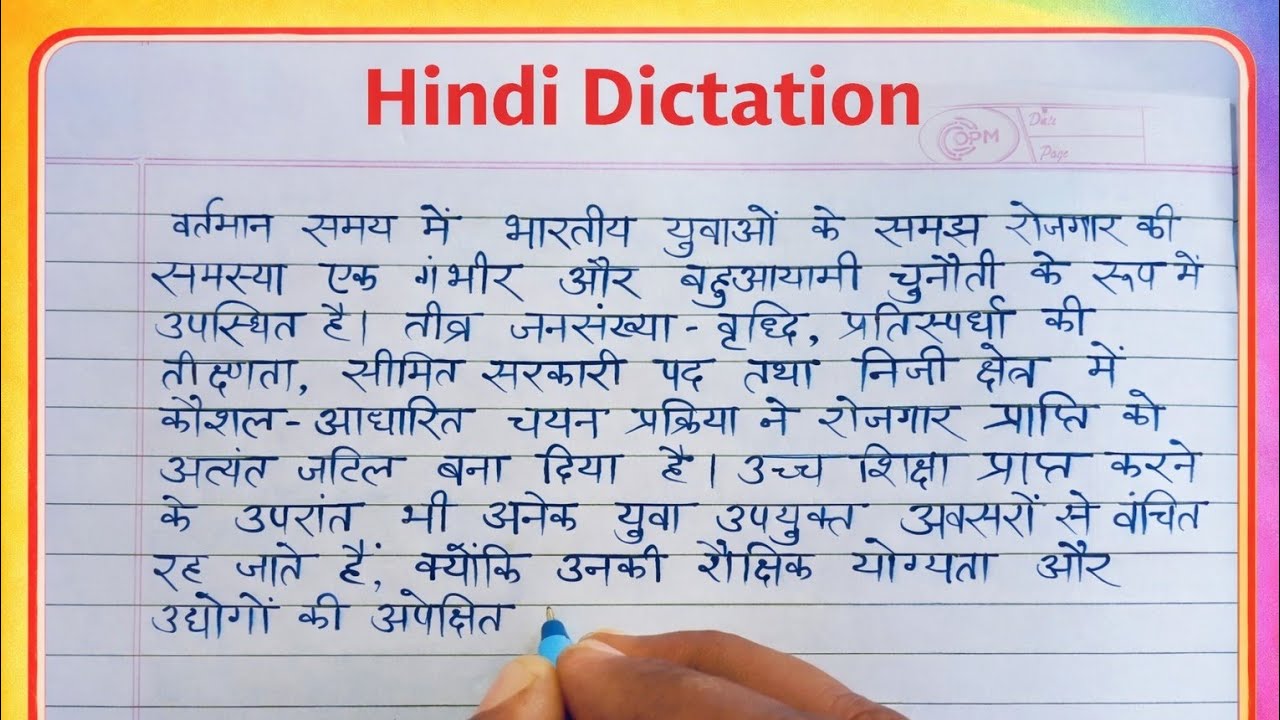 Hindi Dictation
OPM
Date
Page
वर्तमान समय में भारतीय युवाओं के समझ रोजगार की
समस्या एक गंभीर और बहुआयामी चुनौती के रूप में
उपस्थित है। तीव्र जनसंख्या - वृध्दि, प्रतिस्पर्धा की
तीक्ष्णता, सीमित सरकारी पद तथा निजी क्षेत्र में
कौशल - आधारित चयन प्रक्रिया ने रोजगार प्राप्ति को
अत्यंत जटिल बना दिया है। उच्च शिक्षा प्राप्त करने
के उपरांत भी अनेक युवा उपयुक्त अवसरों से वंचित
रह जाते हैं, क्योंकि उनकी शैक्षिक योग्यता और
उद्योगों की अपेक्षित